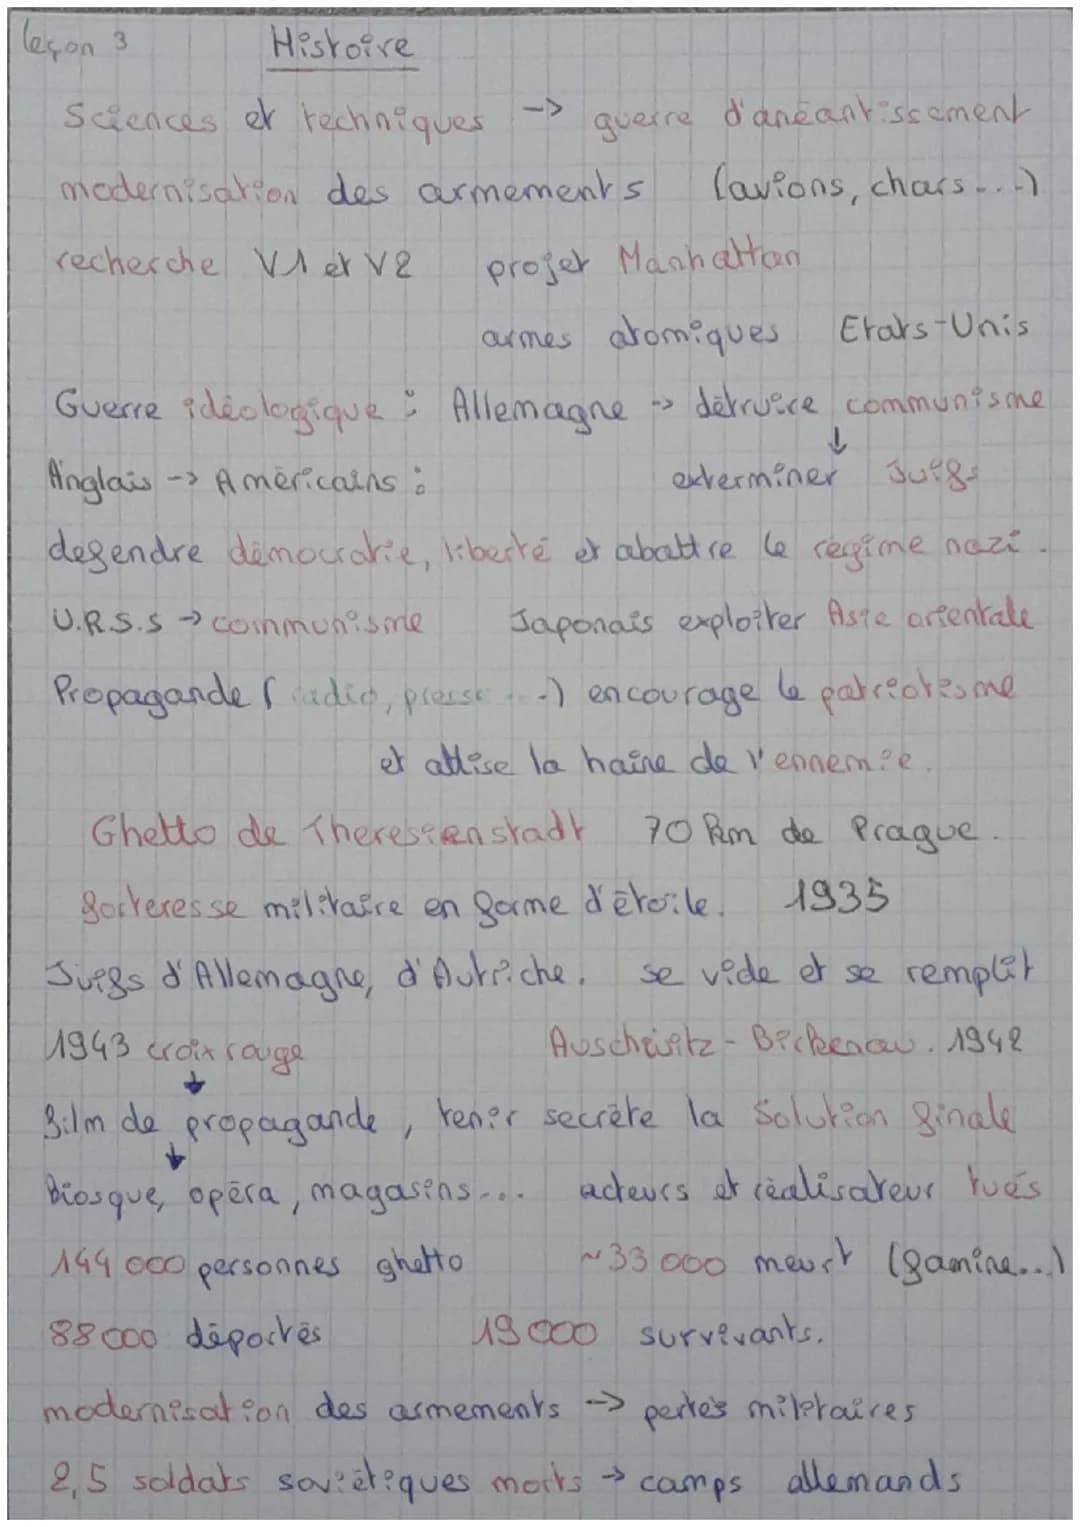 leçon 3 Histoire
Sciences et techniques -> guerre d'anéantissement
modernisation des armements (avions, chars...)
recherche V1 et V2 projet Manhattan
armes atomiques Etats-Unis
Guerre idéologique : Allemagne -> détruire communisme
↓
Anglais -> Américains : exterminer Juifs
defendre démocratie, liberté et abattre le régime nazi.
U.R.S.S -> communisme Japonais exploiter Asie orientale
Propagande (radio, presse...) encourage le patriotisme
et attise la haine de l'ennemie.
Ghetto de Theresienstadt 70 km de Prague.
forteresse militaire en forme d'étoile. 1935
Juifs d'Allemagne, d'Autriche. se vide et se remplit
1943 croix rouge Auschwitz-Birkenau. 1942
↓
film de propagande, tenir secrète la Solution finale
↓
kiosque, opéra, magasins... acteurs et réalisateur tués
144 000 personnes ghetto ~33 000 meurt (famine...)
88 000 déportés 19 000 survivants.
modernisation des armements -> pertes militaires
2,5 soldats soviétiques morts -> camps allemands